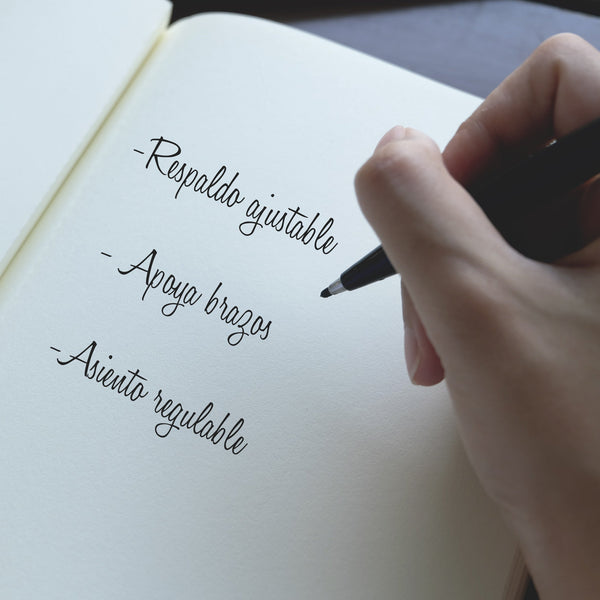 -Respaldo ajustable
- Apoya brazos
-Asiento regulable